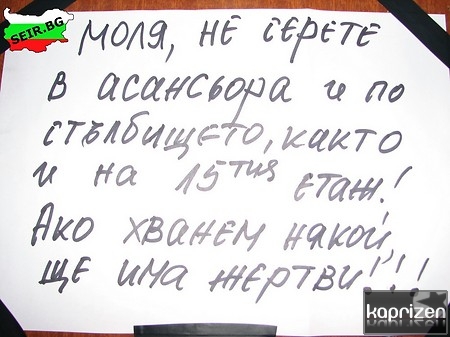 SEIR.BG
МОЛЯ, НЕ СЕРЕТЕ
В АСАНСЬОРА И ПО
СТЪЛБИЩЕТО, КАКТО
И НА 15тия ЕТАЖ!
АКО ХВАНЕМ НЯКОЙ,
ЩЕ ИМА ЖЕРТВИ!!!
kaprizen